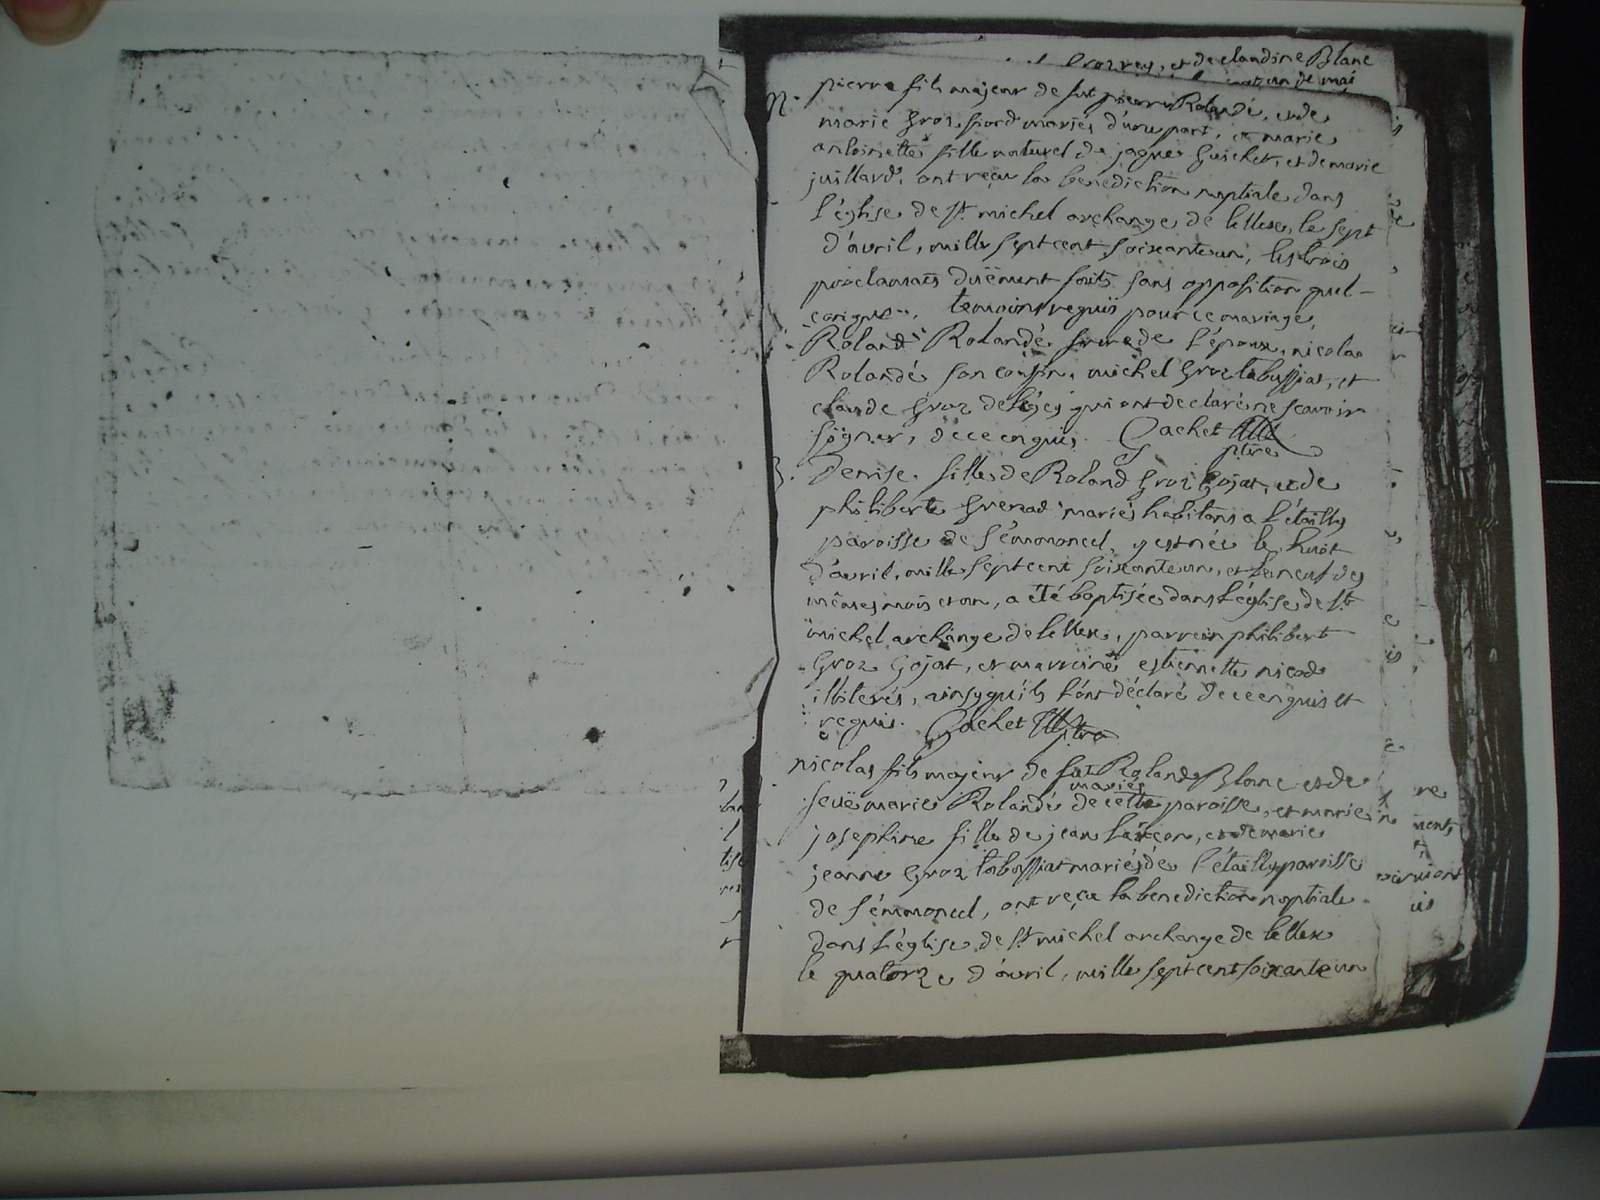 et de claudine Blanc
un de mai
pierre fils majeur de fut pierre Rolandé, et de
marie Groz fiord mariés d'une part, et marie
antoinette fille naturel de jaque Guichet, et de marie
juillard, ont reçu la benediction nuptiale dans
l'église de St michel archange de lellex, le sept
d'avril, mille sept cent soixante un, les trois
proclamats düement faits sans opposition quel-
conque, temoins requis pour ce mariage,
Roland Rolandé frere de l'époux, nicolas
Rolandé son cousin, michel Groz tabussiat, et
claude Groz qui ont declaré ne scavoir
signer, de ce enquis. Gachet
ptre
Denise fille de Roland Groz Gojat, et de
philiberte Grenad mariés habitans a l'étailly
paroisse de sémoncel, y est née le huit
d'avril, mille sept cent soixante un, et le neuf des
mêmes mois et an, a été baptisée dans l'église de St
michel archange de lellex, parrein philibert
Groz Gojat, et marreine estiennette nicod
illiterés, ainsy qu'ils l'ont déclaré de ce enquis et
requis. Gachet ptre
nicolas fils majeur de fut Roland Blanc et de
feuë marie Rolandé mariés de cette paroisse, et marie
josephine fille de jean lançon, et de marie
jeanne Groz tabussiat mariés de l'étailly paroisse
de sémoncel, ont reçu la benediction nuptiale
dans l'église de St michel archange de lellex
le quatorze d'avril, mille sept cent soixante un